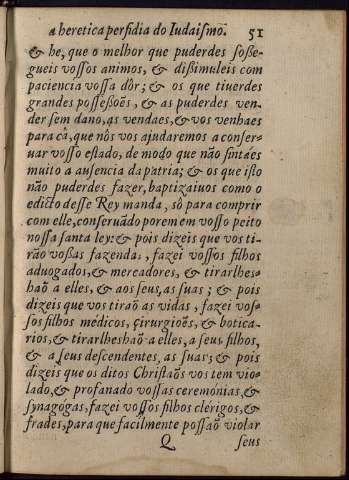 a heretica perfidia do Iudaismo. 51
& he, que o melhor que puderdes soße-
gueis vossos animos, & dißimuleis com
paciencia vossa dòr; & os que tiuerdes
grandes posseßoẽs, & as puderdes ven-
der sem dano, as vendaes, & vos venhaes
para cá, que nós vos ajudaremos a conser-
uar vosso estado, de modo que não sintáes
muito a ausencia da patria; & os que isto
não puderdes fazer, baptizaiuos como o
edicto desse Rey manda, sò para comprir
com elle, conseruãdo porem em vosso peito
nossa santa ley: & pois dizeis que vos ti-
rão voßas fazendas, fazei vossos filhos
aduogados, & mercadores, & tirarlhes-
haõ a elles, & aos seus, as suas; & pois
dizeis que vos tiraõ as vidas, fazei vos-
sos filhos médicos, çirurgioẽs, & botica-
rios, & tirarlheshaõ a elles, a seus filhos,
& a seus descendentes, as suas; & pois
dizeis que os ditos Christaõs vos tem vio-
lado, & profanado vossas ceremónias, &
synagógas, fazei vossos filhos clérigos, &
frades, para que facilmente possaõ violar
Q seus